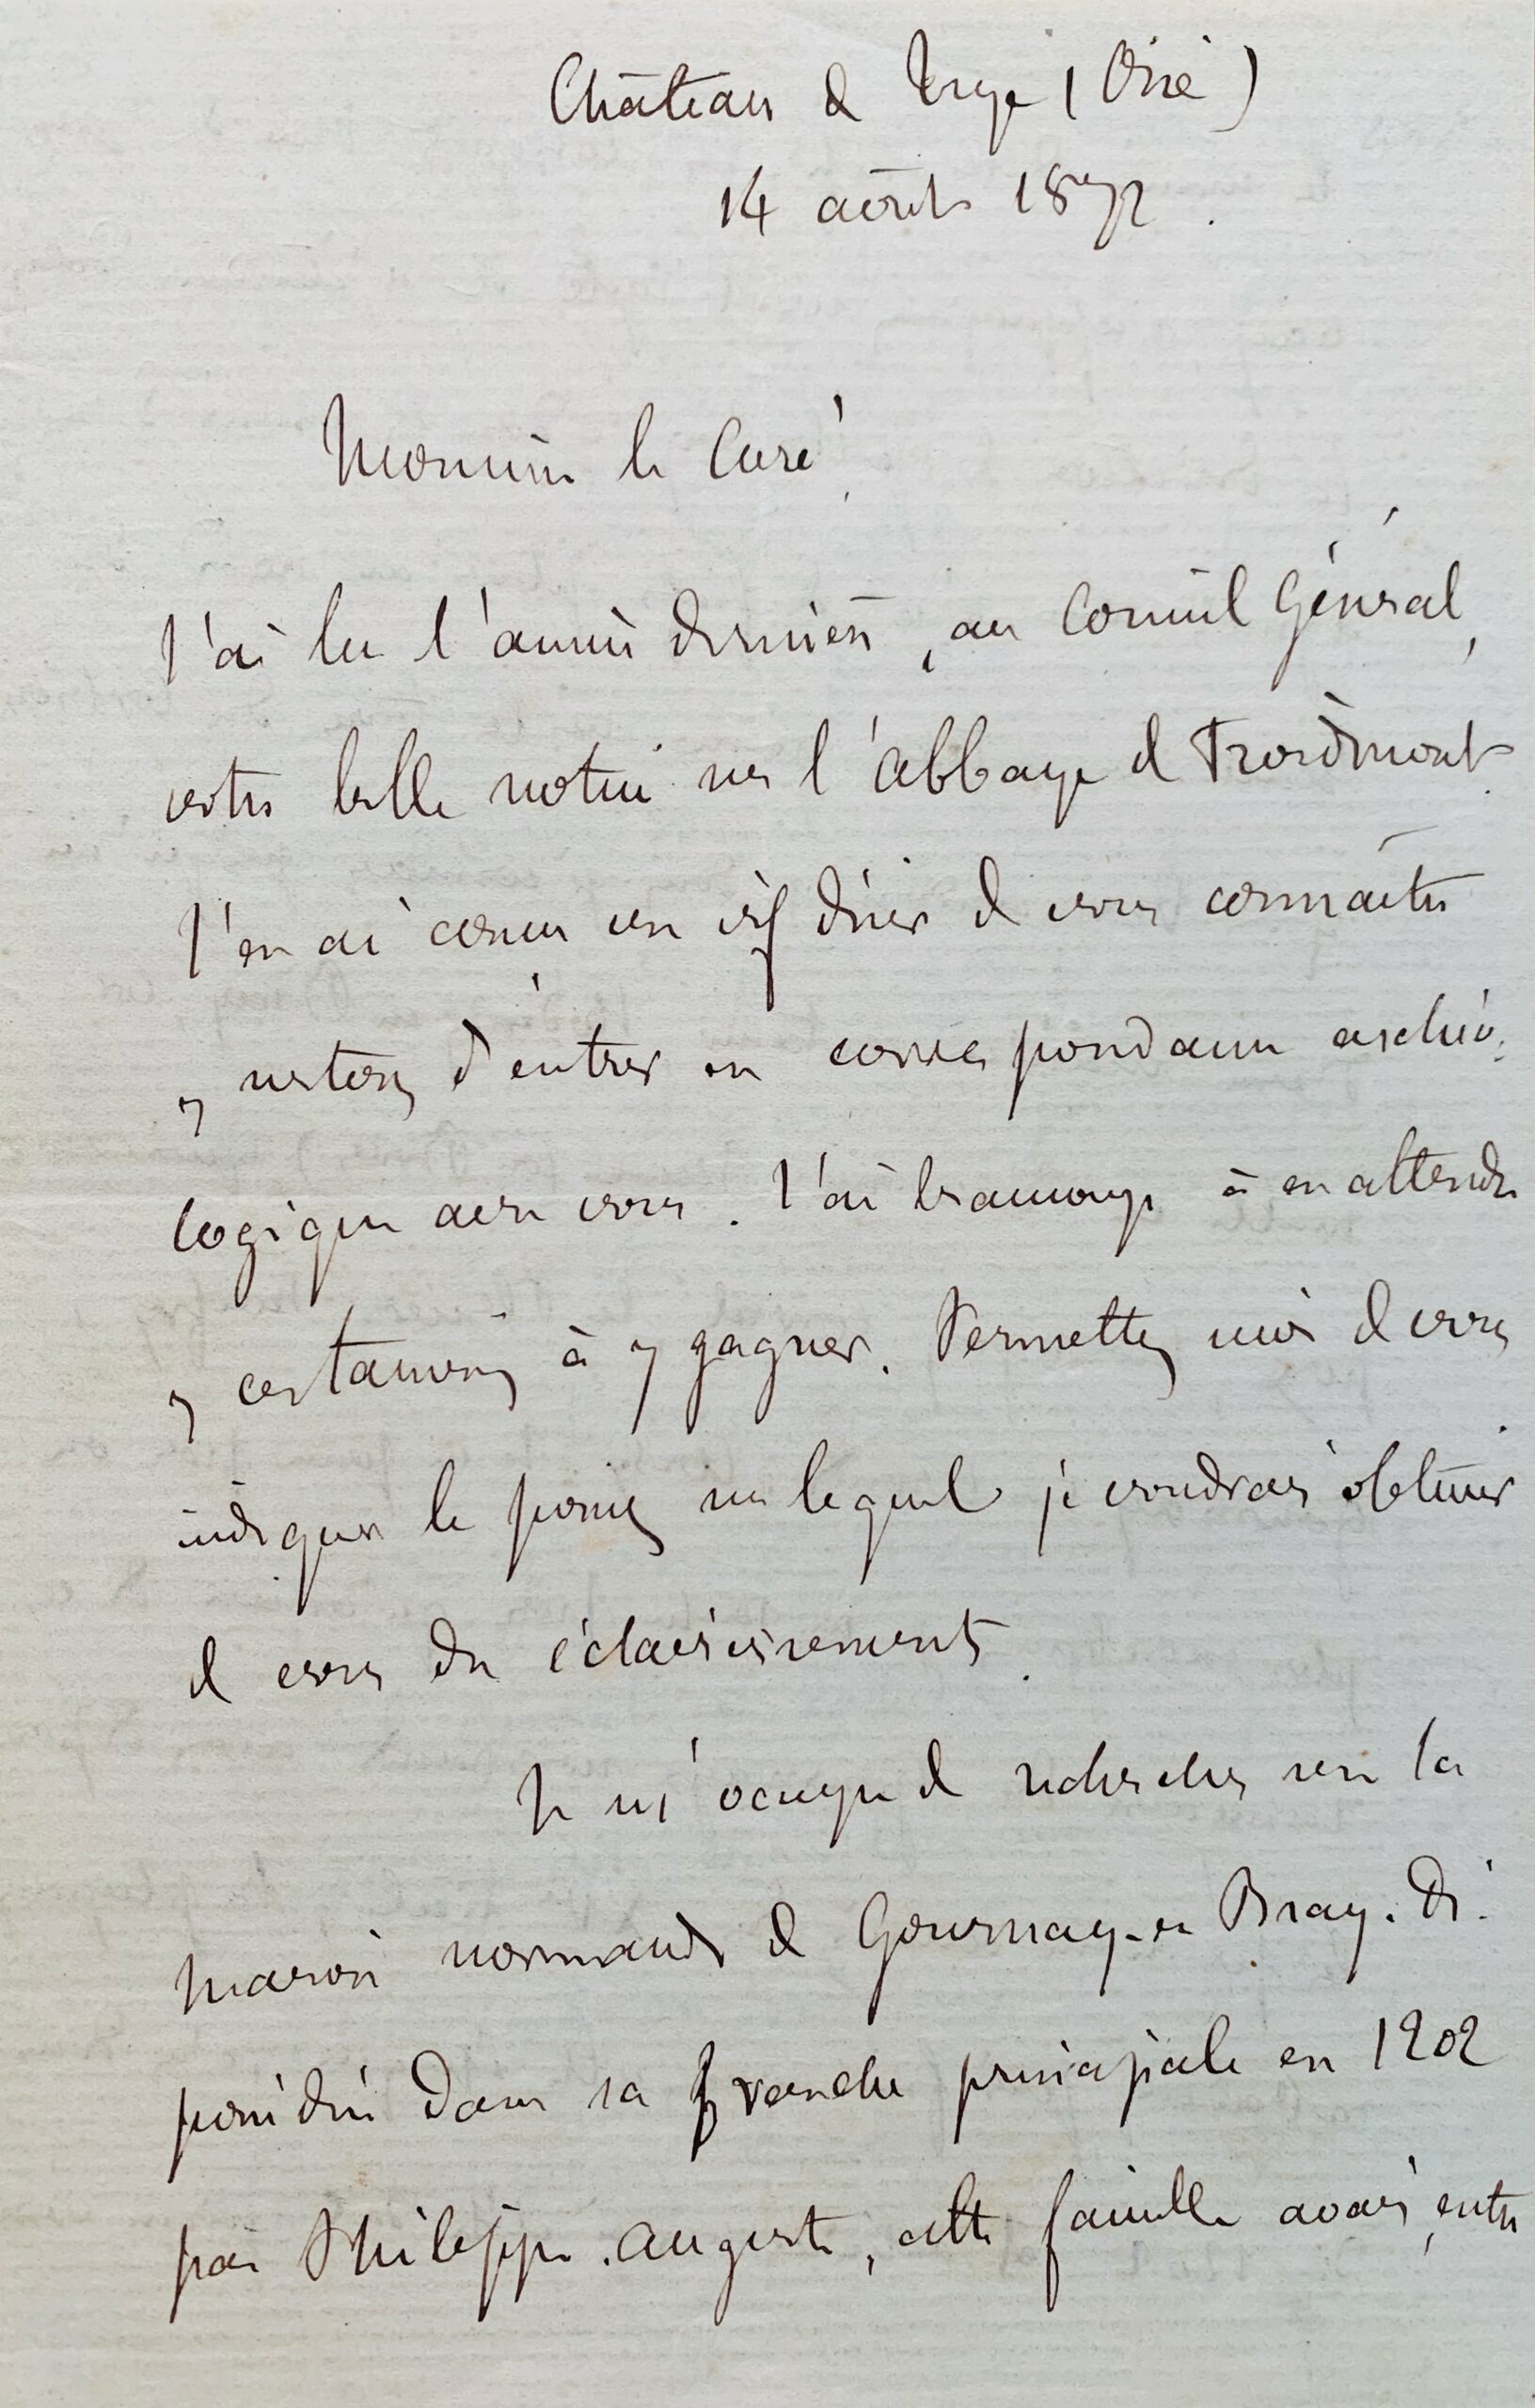 Château de Troye (Oise)
14 août 1872.
Monsieur le Curé,
J'ai lu l'année dernière, au Conseil Général,
votre belle notice sur l'Abbaye de Froidmont.
J'en ai conçu un vif désir de vous connaître
et surtout d'entrer en correspondance archéo-
logique avec vous. J'ai beaucoup à en attendre
et certainement à y gagner. Permettez moi de vous
indiquer le point sur lequel je voudrais obtenir
de vous des éclaircissements.
Je m'occupe de recherches sur la
maison normande de Gournay-en Bray. Dé-
possédée dans sa branche principale en 1202
par Philippe-Auguste, cette famille avait, entre